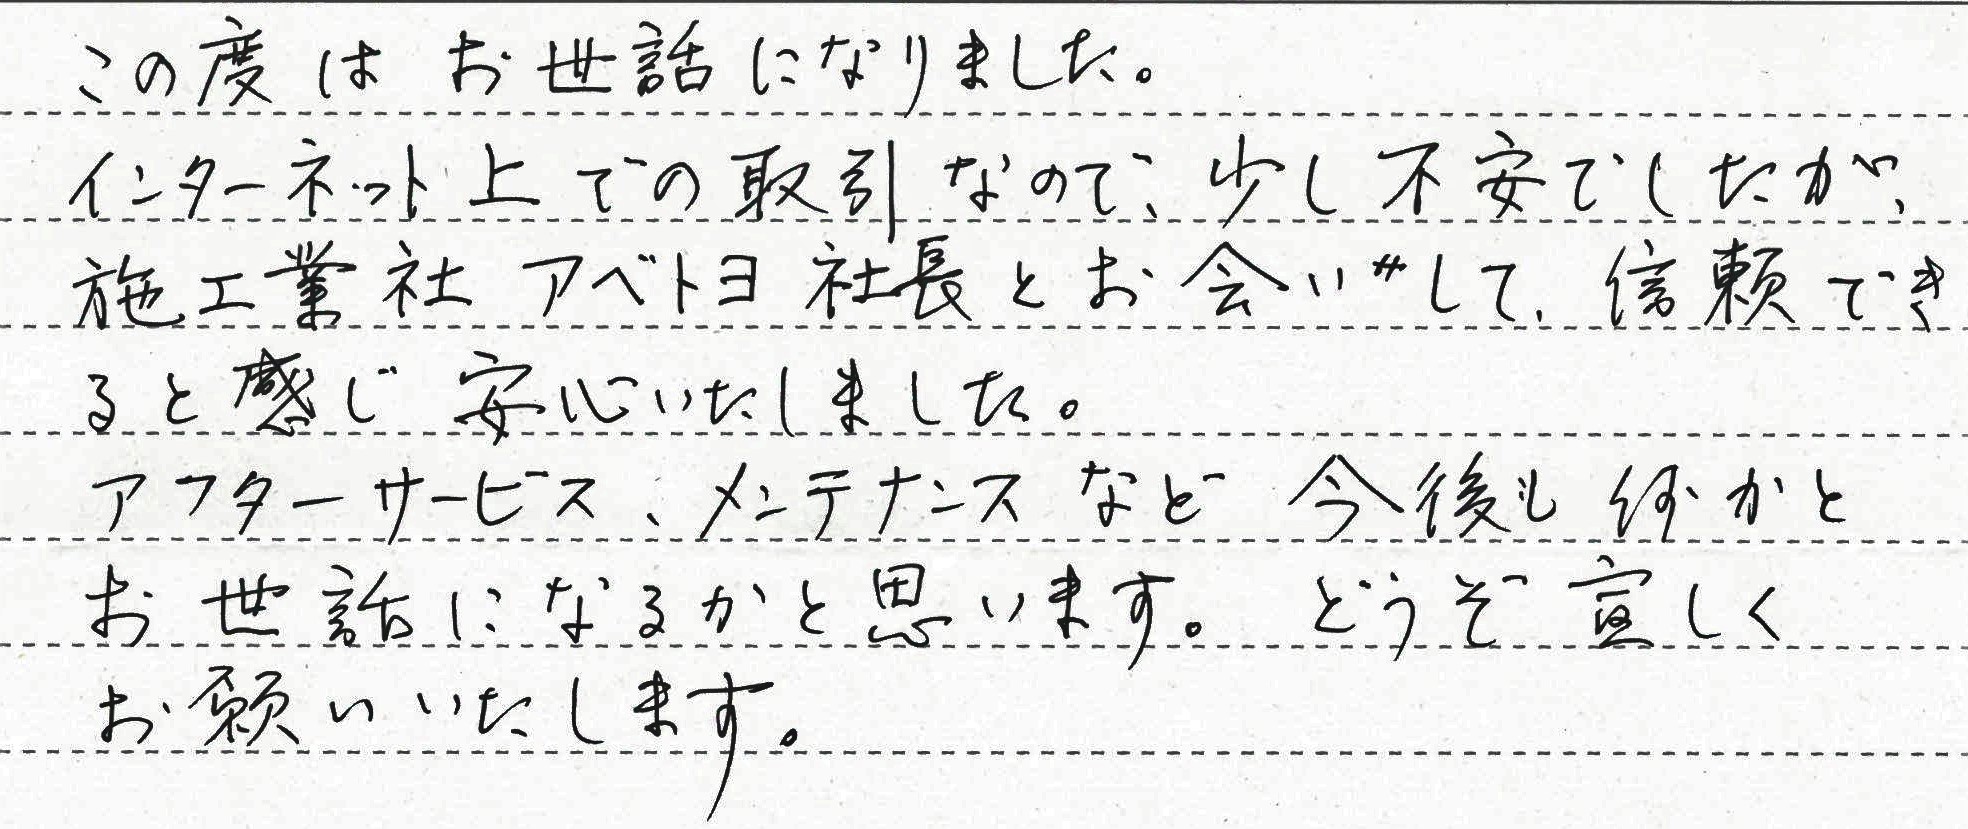 この度は お世話になりました。
インターネット上での取引なので、少し不安でしたが、
施工業社 アベトヨ社長とお会いして、信頼でき
ると感じ 安心いたしました。
アフターサービス、メンテナンスなど 今後も何かと
お世話になるかと思います。どうぞ宜しく
お願いいたします。